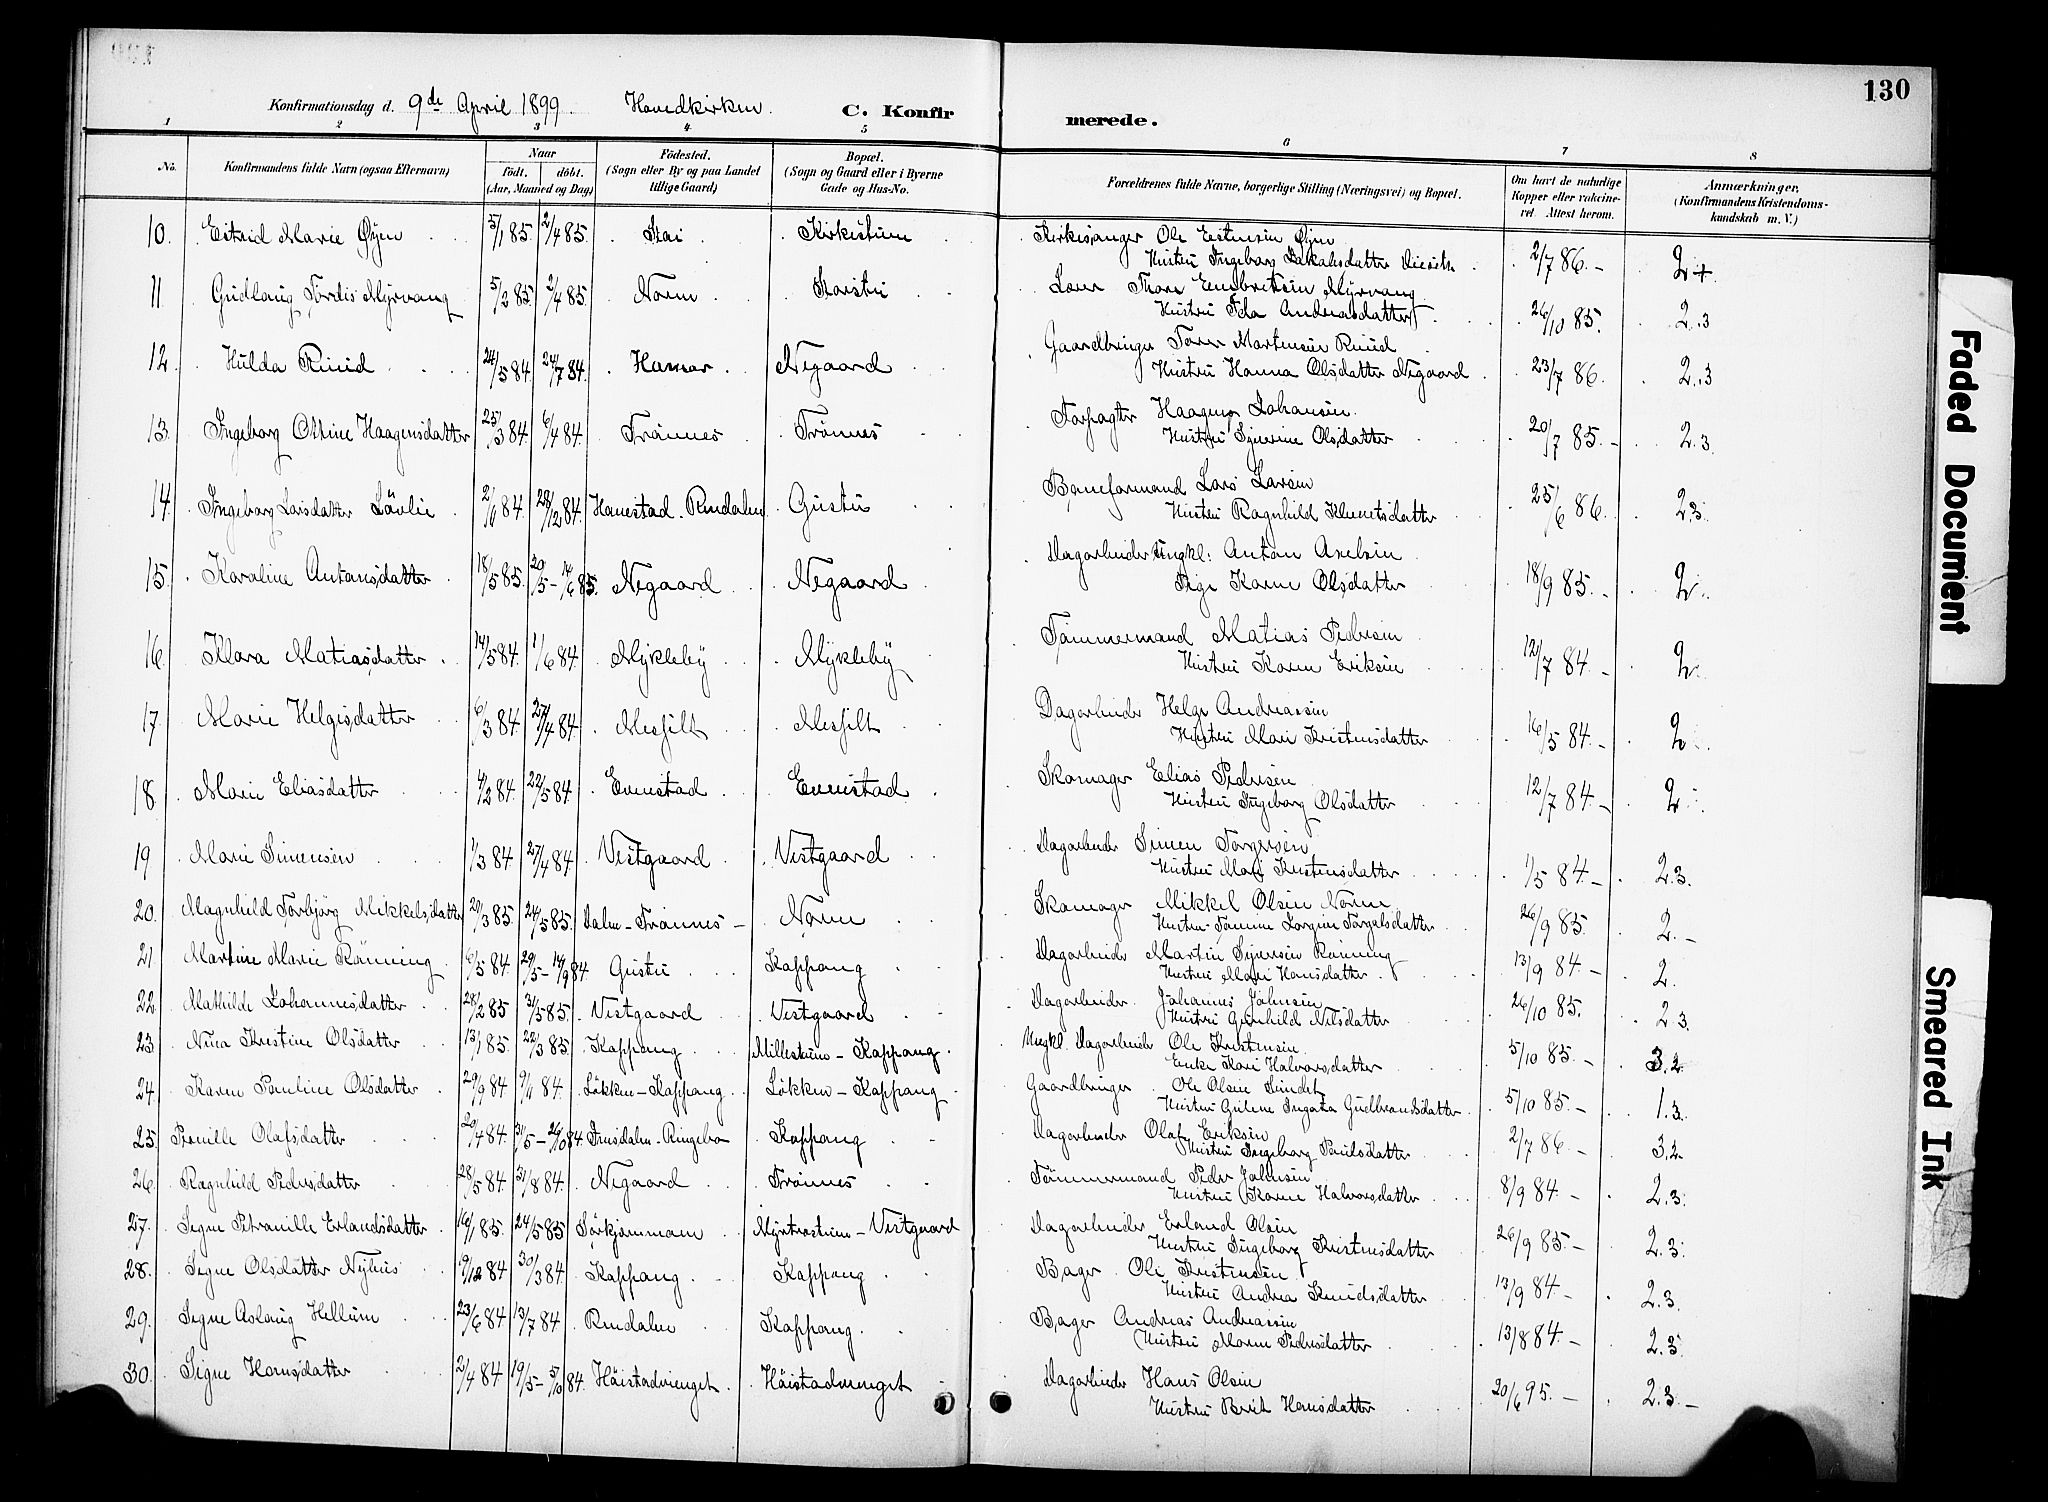 130
Konfirmationsdag d. 9de April 1899. Hovedkirken. C. Konfirmerede.
1 2 3 4 5 6 7 8
No. Konfirmandens fulde Navn (ogsaa Efternavn) Naar født. døbt. (Aar, Maaned og Dag) Fødested. (Sogn eller By og paa Landet tillige Gaard) Bopæl. (Sogn og Gaard eller i Byerne Gade og Hus-No. Forældrenes fulde Navne, borgerlige Stilling (Næringsvei) og Bopæl. Om havt de naturlige Kopper eller vakcineret. Attest herom. Anmærkninger. (Konfirmandens Kristendomskundskab m. V.)
10. Estrid Marie Øyen 5/1 85. 2/4 85. Stai Kirkestuen Kirkesanger Ole Estensen Øyen
Hustru Ingeborg Jakobsdatter 2/7 86.- 2+
11. Gudlaug Tordis Myrvang 5/2 85 3/4 85. Noren Lærer Thore Embretsen Myrvang
Hustru Ida Andreasdatter 26/10 85. 2.3
12. Hulda Ruud 24/5 84. 24/7 84. Hamar Negaard Gaardbruger Martensen Ruud
Hustru Hanna Olsdatter Negaard 23/7 86. 2.3
13. Ingeborg Oline Haagensdatter 25/3 84 6/4 84. Trønnes Trønnes Forpagter Haagen Johansen
Hustru Sjverine Olsdatter 20/7 85.- 2.3.
14. Ingeborg Larsdatter Løvlie 2/1 84. 28/12 84. Hanestad. Rendalen Gustu Baneformand Lars Larsen
Hustru Ragnhild Klemetsdatter 25/6 86. 2.3.
15. Karoline Antonsdatter 18/5 85. 20/5 - 14/6 85. Negaard Negaard Dagarbeider Ungkl: Anton Axelsen
Pige Karen Olsdatter 18/9 85.- 2.
16. Klara Matiasdatter 14/5 84. 1/6 84. Mykleby Mykleby Tømmermand Matias Pedersen
Hustru Karen Eriksen 12/7 84.- 2.
17. Marie Helgesdatter 6/3 84. 27/4 84. Messelt Messelt Dagarbeider Helge Andreassen
Hustru Mari Kristensdatter 16/5 84.- 2
18. Marie Eliasdatter 4/2 84. 22/5 84. Evenstad Evenstad Skomager Elias Pedersen
Hustru Ingeborg Olsdatter 12/7 84.- 2
19 Marie Simensen 1/3 84 27/4 84. Vestgaard Vestgaard Dagarbeider Simen Torgersen
Hustru Mari Kristensdatter 1/5 84.- 2.3.
20. Magnhild Torbjørg Mikkelsdatter 20/3 85. 24/5 85. Dalen - Trønnes - Noren Skomager Mikkel Olsen Noren
Hustru Torgalsdatter 26/9 85. 2.-
21. Martine Marie Rønning 6/5 84. 29/5 - 14/9 84. Gustu Koppang Dagarbeider Martin Sjversen Rønning
Hustru Mari Hansdatter 13/9 84.- 2.
22. Mathilde Johannesdatter 28/2 85 31/5 85. Vestgaard Vestgaard Dagarbeider Johannes Johnsen
Hustru Gunhild Nilsdatter 26/10 85. 2.3.
23. Nina Kristine Olsdatter 13/1 85. 22/3 85. Koppang Millestuen - Koppang Ungkl. Dagarbeider Ole Kristensen
Enke Kari Halvorsdatter 5/10 85.- 3.2
24. Karen Pauline Olsdatter 29/9 84 9/11 84. Løkken - Koppang Løkken - Koppang Gaardbruger Ole Olsen Sundet
Hustru Guline Ingata Gudbrandsdatter 5/10 85.- 1.3.
25. Pernille Olafsdatter 20/4 84. 31/5 - 26/10 84. Ringebo Koppang Dagarbeider Olaf Eriksen
Hustru Ingeborg Paulsdatter 2/7 86.- 3.2
26. Ragnhild Pedersdatter 28/5 84. 31/8 84. Negaard Trønnes Tømmermand Peder Johnsen
Hustru Karen Halvorsdatter 8/9 84.- 2.3.
27. Signe Petronille Erlandsdatter 16/1 85. 24/5 85 Vestgaard Dagarbeider Erland Olsen
Hustru Ingeborg Kristensdatter 26/9 85.- 2.3.
28. Signe Olsdatter Nyhus 30/3 84. Koppang Koppang Bager Ole Kristensen
Hustru Andrea Knudsdatter 13/9 84.- 2.3.
29. Signe Aslaug Hellum 23/6 84 13/7 84 Rendalen Koppang. Bager Andreas Andreassen
Hustru Maren Pedersdatter 13/8 84.- 2.3.
30. Signe Hansdatter 2/4 84 19/5 - 5/10 84. Høistadvenget Høistadvenget Dagarbeider Hans Olsen
Hustru Berit Hansdatter 20/6 95.- 2.3.-
Faded Document
Smeared Ink